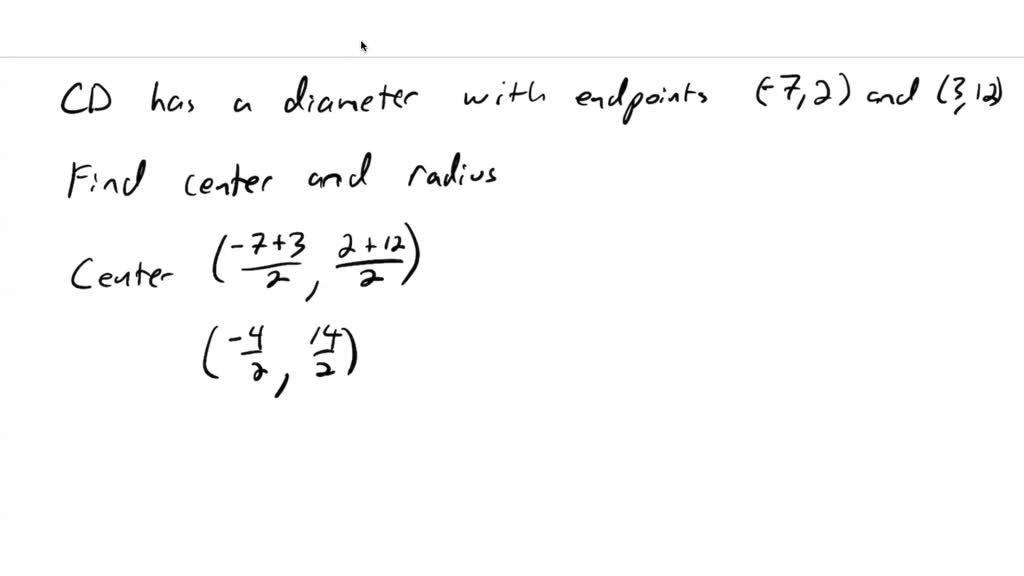 CD has a diameter with endpoints (-7,2) and (3,12)
Find center and radius
Center (-7+3/2, 2+12/2)
(-4/2, 14/2)